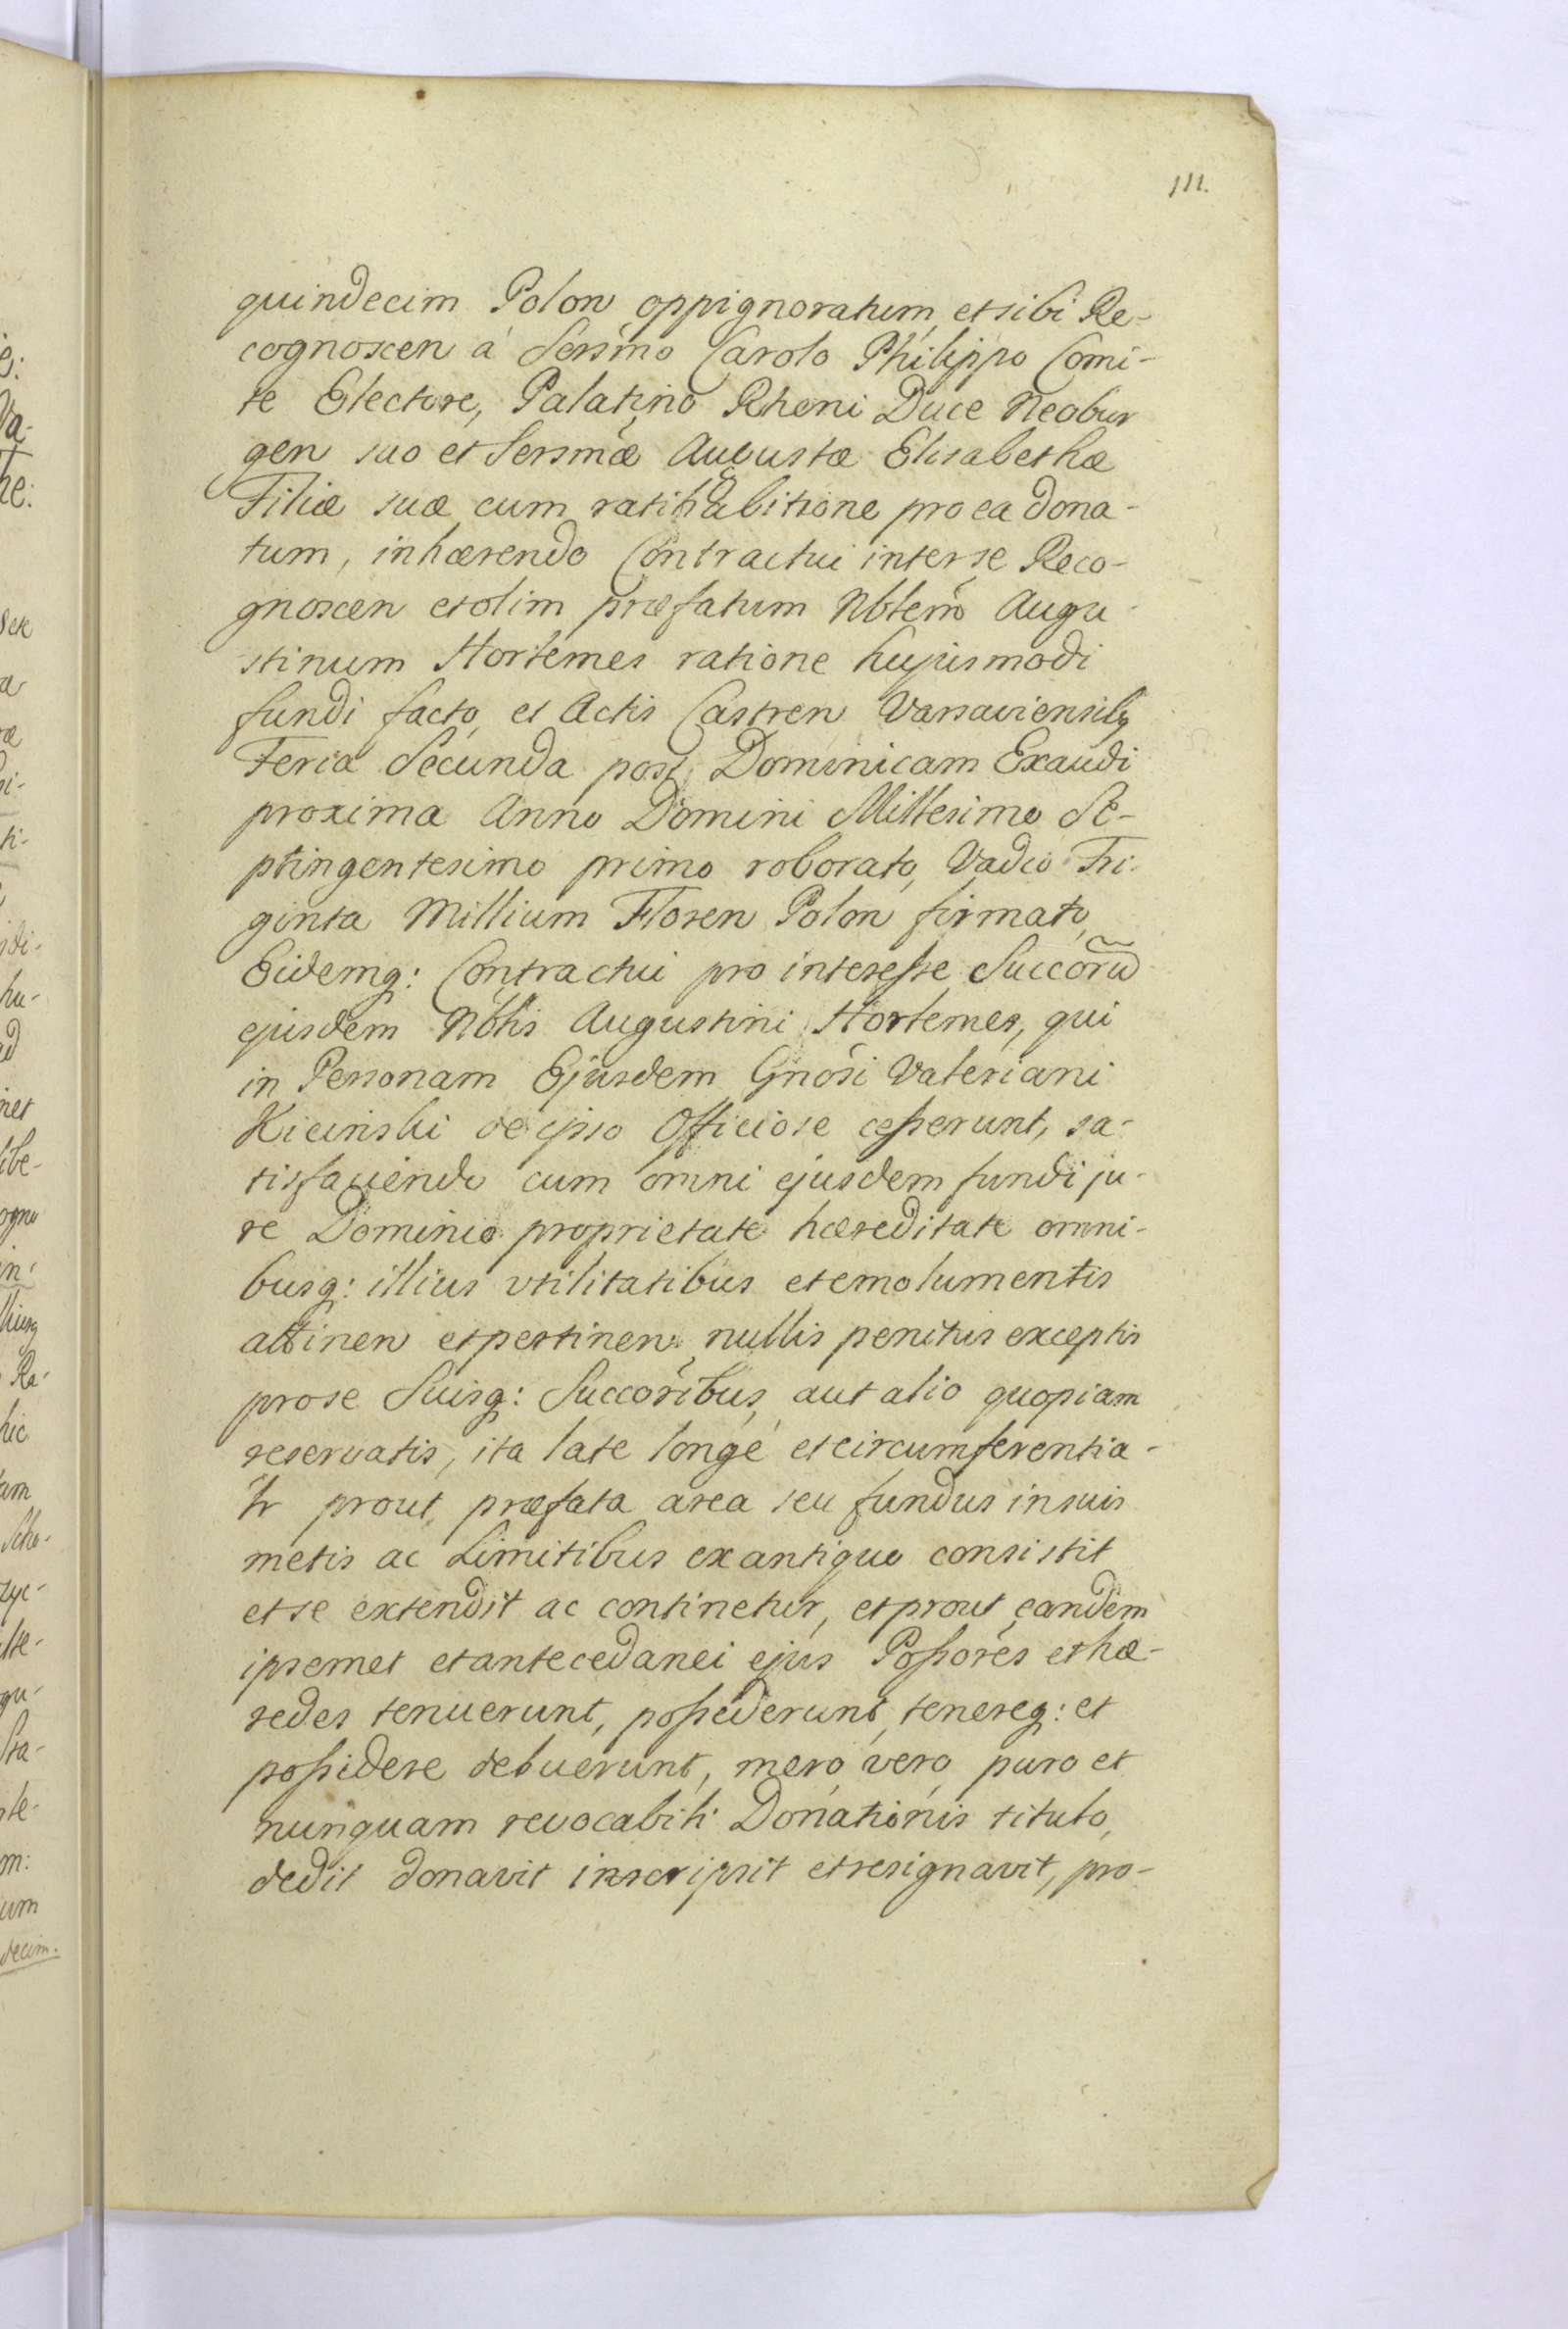 111.
quindecim Polon oppignoratum, et sibi Re-
cognoscen à Sersmo Carolo Philippo Comi-
te Electore, Palatino Rheni Duce Neobur
gen suo et Sersmæ Augustæ Elisabethæ
Filiæ suæ cum ratihabitione pro ea dona-
tum, inhærendo Contractui inter se Reco-
gnoscen et olim præfatum Nbtem Augu-
stinum Hortemes ratione hujusmodi
fundi facto, et Actis Castren Varsaviensibq
Feria Secunda post Dominicam Exaudi
proxima Anno Domini Millesimo Se-
ptingentesimo primo roborato, Vadio Tri-
ginta Millium Floren Polon firmato,
Eidemq: Contractui pro interesse Succorũ
ejusdem Nbtis Augustini Hortemes, qui
in Personam Ejusdem Gnosi Valeriani
Kicinski de ipso Officiose cesserunt, sa-
tisfaciendo cum omni ejusdem fundi ju-
re Dominio proprietate hæreditate omni-
busq: illius vtilitatibus et emolumentis
attinen et pertinen: nullis penitus exceptis
pro se Suisq: Succoribus, aut alio quopiam
reservatis, ita late longè et circumferentia-
lr prout, præfata area seu fundus in suis
metis ac Limitibus ex antiquo consistit
et se extendit ac continetur, et prout eandem
ipsemet et antecedanei ejus Possores et hæ-
redes tenuerunt, possederunt, tenereq: et
possidere debuerunt, mero vero puro et
nunquam revocabili Donationis titulo,
dedit donavit inscripsit et resignavit, pro-